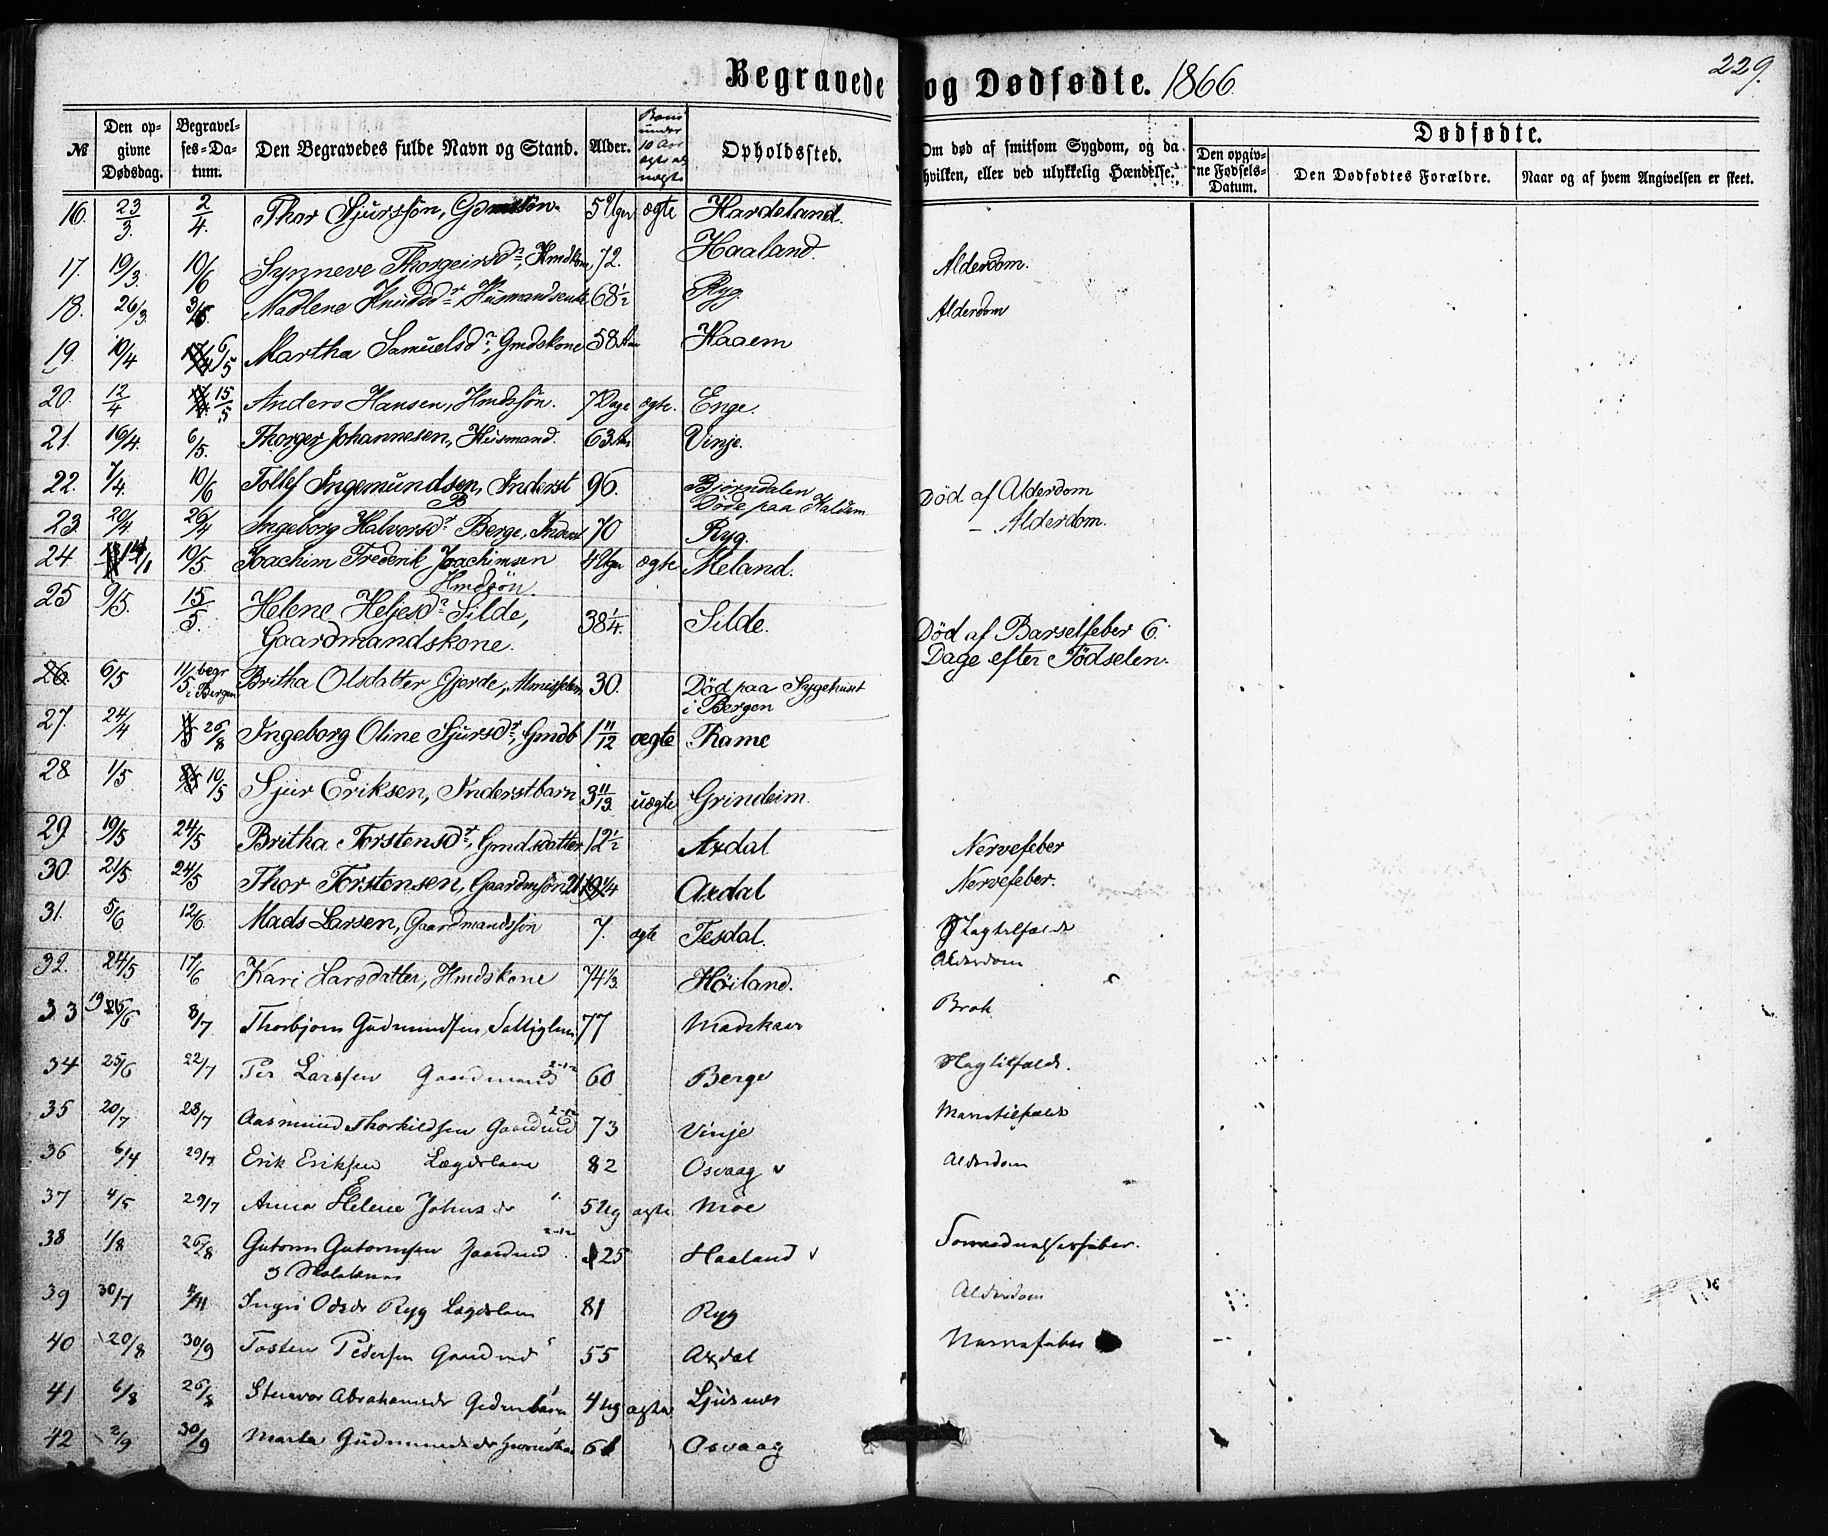 Begravede og Dødfødte. 1866
229.
№ Den opgivne Dødsdag. Begravelses-Datum. Den Begravedes fulde Navn og Stand. Alder. Børn under 10 Aar ægte el. uægte Opholdssted. Om død af smitsom Sygdom, og da hvilken, eller ved ulykkelig Hændelse. Dødfødte. Den opgivne Fødsels-Datum. Den Dødfødtes Forældre. Naar og af hvem Angivelsen er skeet.
16. 23/3. 2/4. Thor Sjurssøn, Gdmssøn. 5 Uger ægte Hardeland.
17. 19/3. 10/6 Synneve Thorgeirsdr, Hmdkone 72. Haaland. Alderdom.
18. 26/3. Madlene Knudsdr, Husmandsenke 68 1/2 Ryg. Alderdom
19. 10/4 6/5 Martha Samuelsdr, Gmdskone 58 Aar Haaem
20. 12/4 15/5 Anders Hansen, Hmdssøn. 7 Dage ægte. Enge.
21. 16/4. 6/5. Thorger Johannesen, Husmand. 63 Aar Vinje.
22. 7/4. 10/6 Tollef Ingemundsen, Inderst 96. Bjørndalen Død af Alderdom
23. 20/4 26/4 Ingeborg Halvorsdr Berge, Inderst 70 Døde paa Haldem Ryg. - Alderdom.
24 10/5 Joachim Frederik Joachimsen Hmdsøn. 4 Uger ægte Meland.
25 9/5. 15/5. Helene Heljesdr Silde, Gaardmandskone. 38 1/4. Silde. Død af Barselfeber 6 Dage efter Fødselen.
26. 6/5 11/5 begr. i Bergen Britha Olsdatter Gjerde, Almisselem 30. Død paa Sygehuset i Bergen
27. 24/4 26/8 Ingeborg Oline Sjursdr, Gmdb 1 11/12 ægte Rame
28 1/5 10/5 Sjur Eriksen, Inderstbarn 3 11/13. uægte Grindeim.
29. 19/5 24/5 Britha Torstensdr, Gmdsdatter 12 1/2 Axdal Nervefeber
30. 21/5 24/5 Thor Torstensen, Gaardmsøn 21 1/4 Axdal Nervefeber.
31. 5/6 12/6. Mads Larsen, Gaardmandssøn 7. ægte Tesdal. Slagtilfælde
32. 24/5 17/6 Kari Larsdatter, Hmdskone 74 1/3. Høiland. Alderdom
33 19/6 8/7 Thorbjørn Gudmundsen, Fattiglem 77 Madskaar Brok
34 25/6 22/7 Per Larssen Gaardmand 60 Berge Slagtilfælde.
35 20/7 28/7 Aasmund Thorkildsen Gaardmd 73 Vinje
36 6/4 29/7 Erik Eriksen Lægdslem 82 Osvaag Alderdom
37 4/5 29/7 Anna Helene Johnsdr 5 Ug ægte Møe
38 1/8 26/8 Gutorm Gutormsen Gaardmd 25 Haaland
39 30/7 4/11 Ingri Odsdr Ryg Lægdslem 81 Ryg Alderdom
40 20/8 30/9 Tosten Pedersen Gaardmd 55 Axdal Nervefeber
41 6/8 26/8 Steinvor Abrahamsdr Gdmbarn 4 Ug ægte Ljusnes
42 2/9 30/9 Marta Gudmundsdr 61 Osvaag